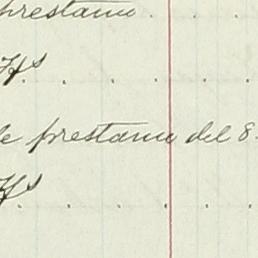 prestamo
Hs
de prestamo del 8
Hs